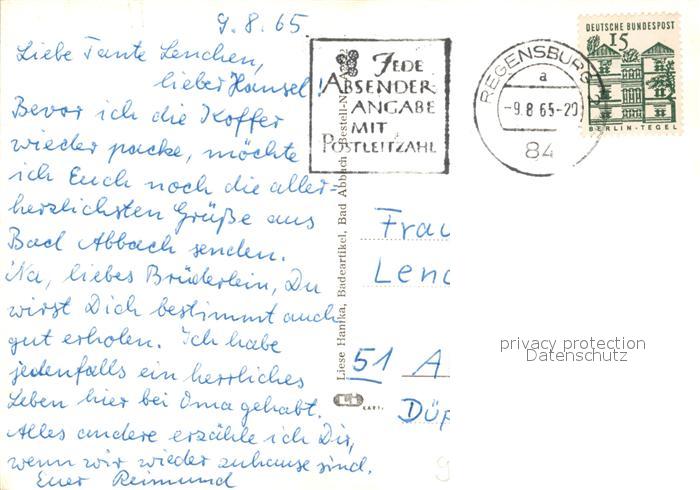 9.8.65
Liebe Tante Lenchen,
lieber Hansel!
Bevor ich die Koffer
wieder packe, möchte
ich Euch noch die aller=
herzlichsten Grüße aus
Bad Abbach senden.
Na, liebes Brüderlein, Du
wirst Dich bestimmt auch
gut erholen. Ich habe
jedenfalls ein herrliches
Leben hier bei Oma gehabt.
Alles andere erzähle ich Dir,
wenn wir wieder zuhause sind.
Euer Reimund
JEDE
ABSENDER-
ANGABE
MIT
POSTLEITZAHL
REGENSBURG
a
-9.8.65-20
84
DEUTSCHE BUNDESPOST
15
BERLIN-TEGEL
Liese Hanika, Badeartikel, Bad Abbach Bestell-N
Frau
Lenc
51 A
Düp
privacy protection
Datenschutz